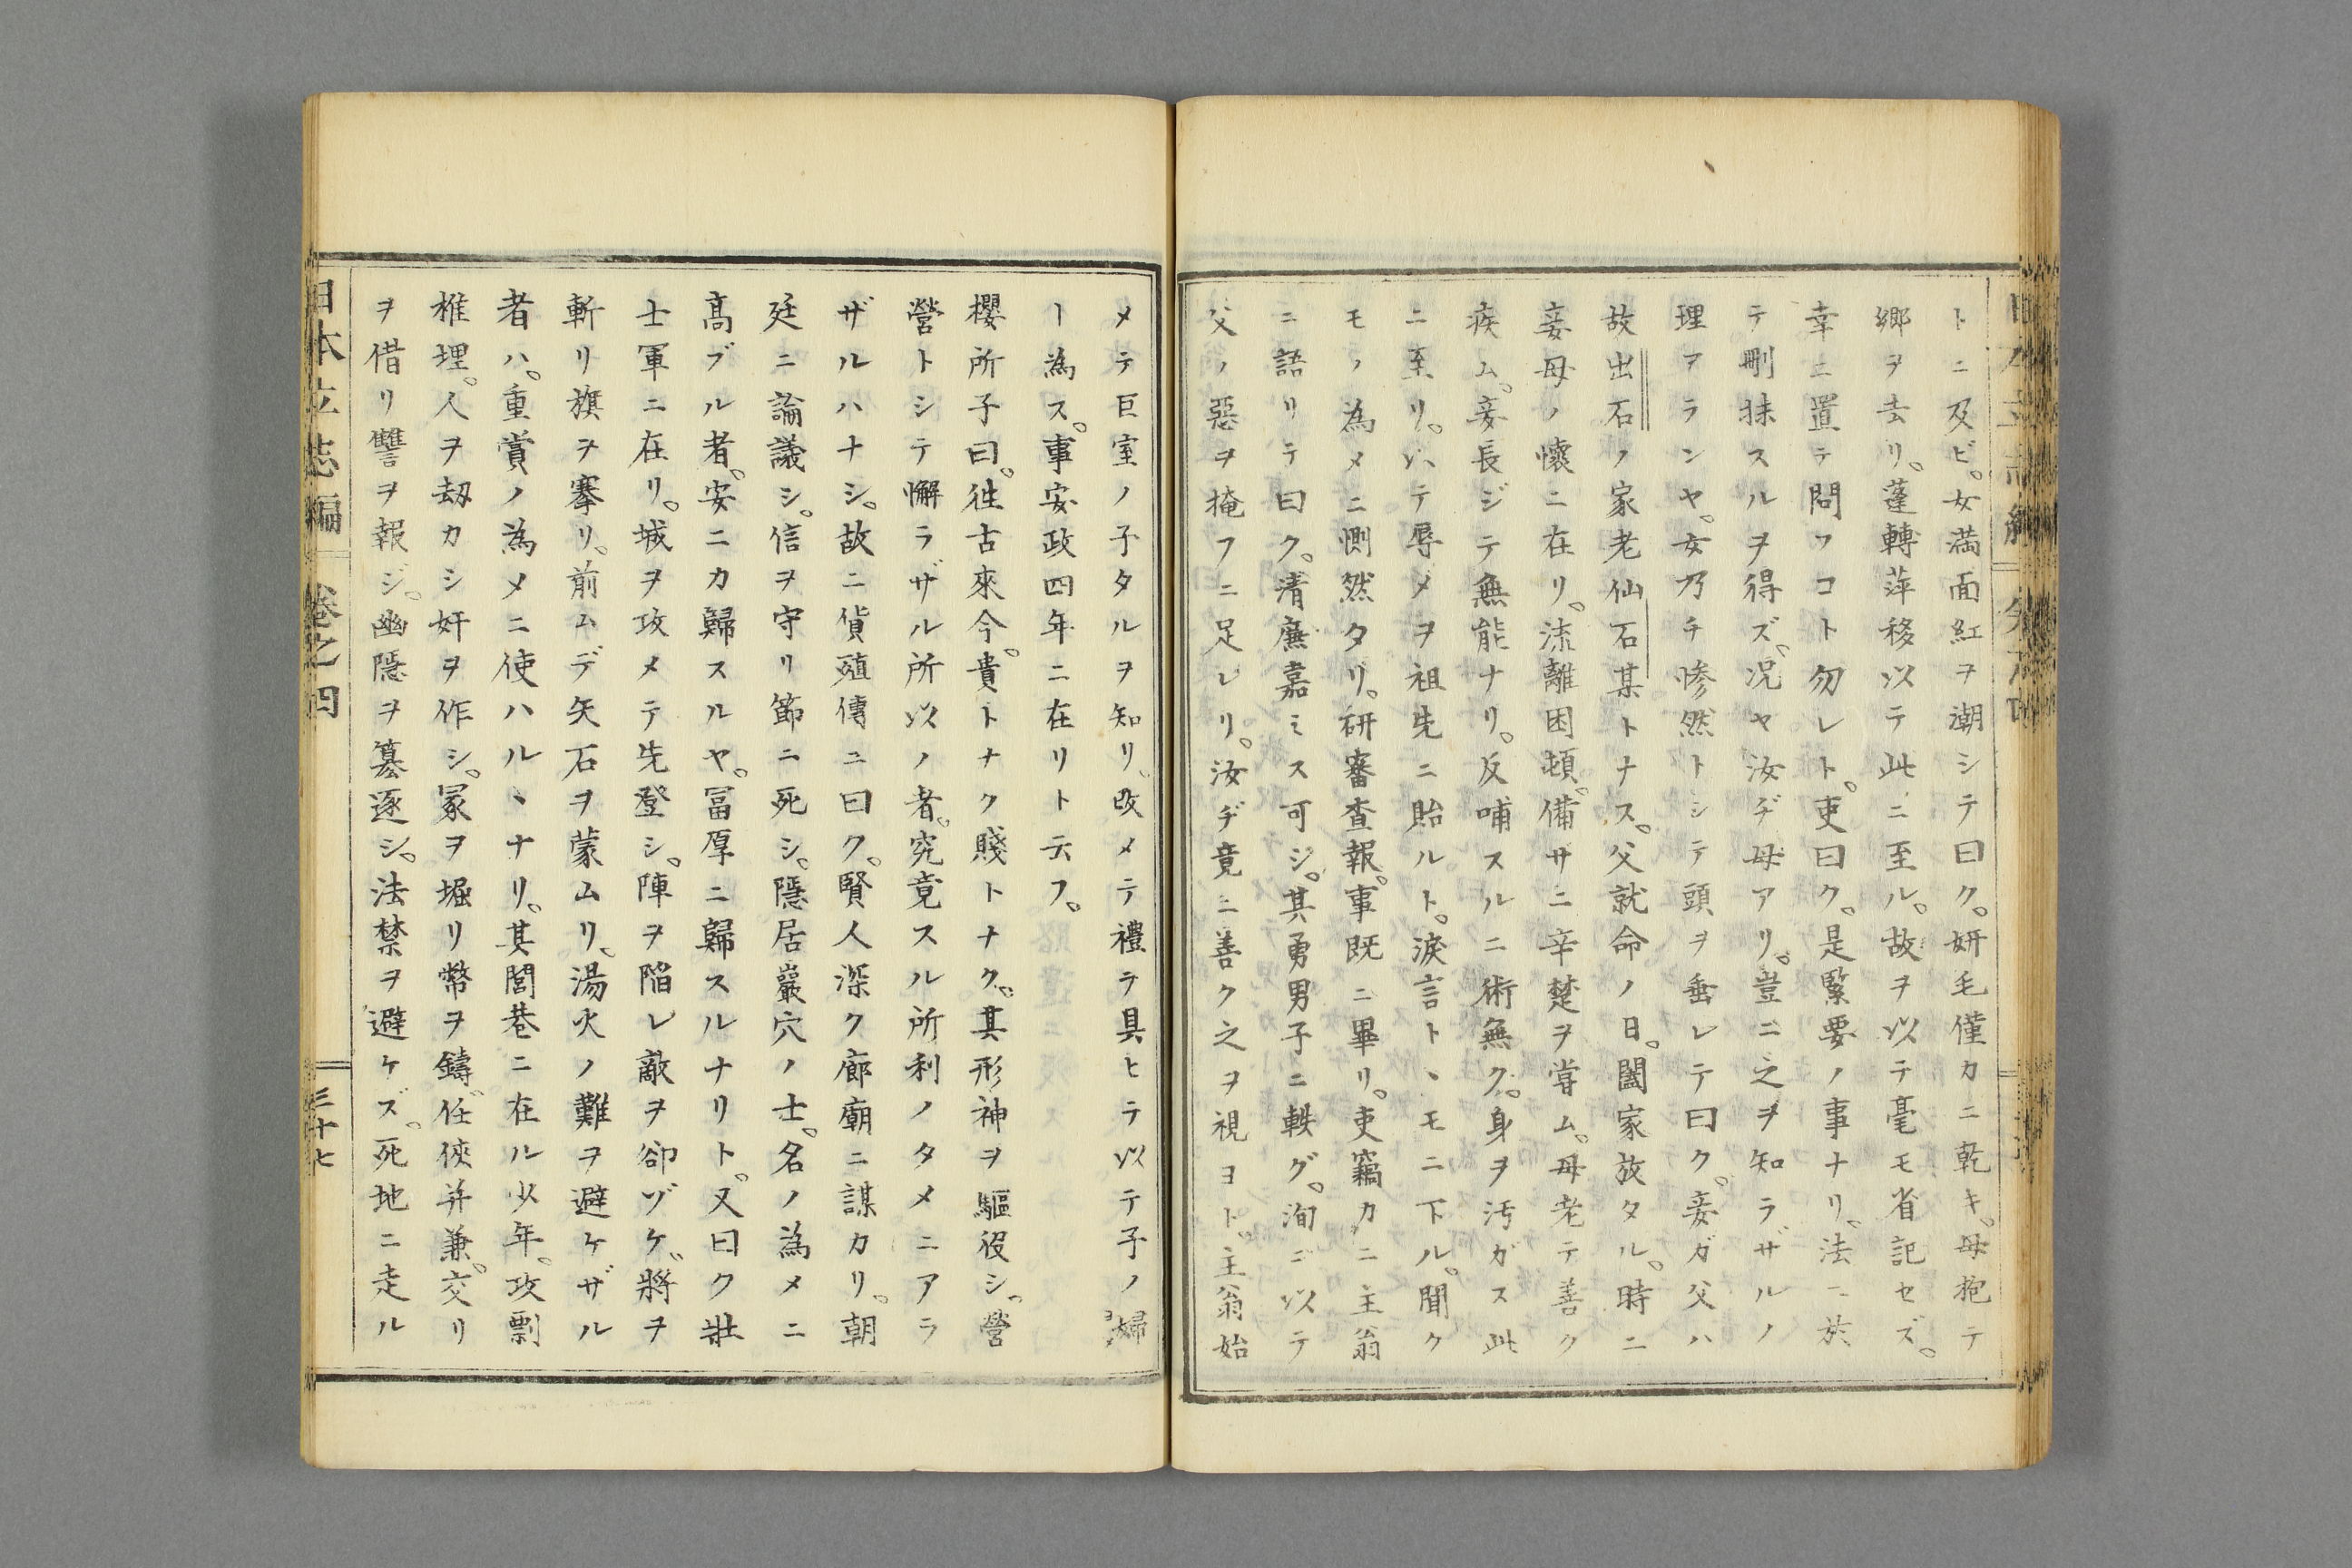 トニ及ビ。女満面紅ヲ潮シテ曰ク。妍毛僅カニ乾キ。母抱テ
郷ヲ去リ。蓬轉萍移以テ此ニ至ル。故ヲ以テ毫モ省記セズ。
幸ニ置テ問フコト勿レト。吏曰ク。是緊要ノ事ナリ。法ニ於
テ刪抹スルヲ得ズ。况ヤ汝ヂ母アリ。豈ニ之ヲ知ラザルノ
理アランヤ。女乃チ惨然トシテ頭ヲ垂レテ曰ク。妾ガ父ハ
故出石ノ家老仙石某トナス。父就命ノ日。闔家放タル。時ニ
妾母ノ懐ニ在リ。流離困頓。備サニ辛楚ヲ甞ム。母老テ善ク
疾ム。妾長ジテ無能ナリ。反哺スルニ術無ク。身ヲ汚ガス此
ニ至リ。以テ辱メヲ祖先ニ貽ルト。淚言ト丶モニ下ル。聞ク
モノ為メニ惻然タリ。研審査報。事既ニ畢リ。吏竊カニ主翁
ニ語リテ曰ク。清廉嘉ミス可ジ。其勇男子ニ軼グ。洵ニ以テ
父ノ惡ヲ掩フニ足レリ。汝ヂ竟ニ善ク之ヲ視ヨト。主翁始
メテ巨室ノ子タルヲ知リ。改メテ禮テ具ヒテ以テ子ノ婦
ー為ス。事安政四年ニ在リト云フ。
櫻所子曰。徃古來今。貴トナク賤トナク。其形神ヲ驅役シ。營
營トシテ懈ラザル所以ノ者。究竟スル所利ノタメニアラ
ザルハナシ。故ニ貨殖傳ニ曰ク。賢人深ク廊廟ニ謀カリ。朝
廷ニ論議シ。信ヲ守リ節ニ死シ。隱居巖穴ノ士。名ノ為メニ
髙ブル者。安ニカ歸スルヤ。冨厚ニ歸スルナリト。又曰ク壯
士軍ニ在リ。城ヲ攻メテ先登シ。陣ヲ陥レ敵ヲ卻ゾケ。將ヲ
斬リ旗ヲ搴リ。前ムデ矢石ヲ蒙ムリ。湯火ノ難ヲ避ケザル
者ハ。重賞ノ為メニ使ハル丶ナリ。其閭巷ニ在ル少年。攻剽
椎埋。人ヲ刼カシ奸ヲ作シ。冢ヲ堀リ幣ヲ鑄。任俠并兼。交リ
ヲ借リ讐ヲ報ジ。幽隱ヲ簒逐シ。法禁ヲ避ケズ。死地ニ走ル
日本立志編 卷之四 三十七